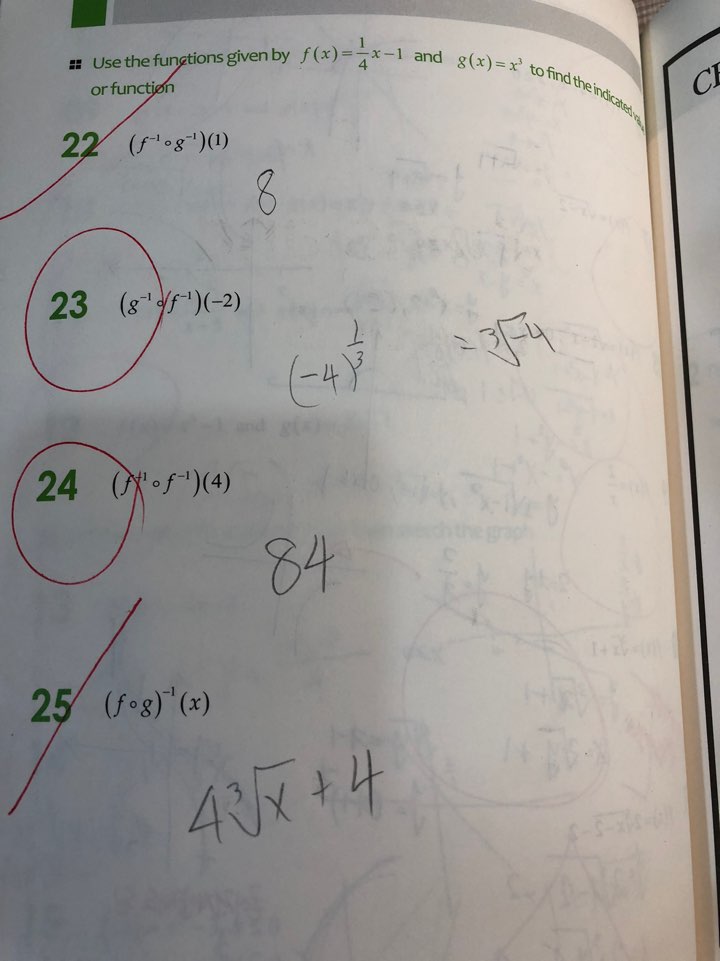 Use the functions given by f(x)=\frac{1}{4}x-1 and g(x)=x³ to find the indicated
or function
22 (f⁻¹∘g⁻¹)(1)
8
23 (g⁻¹∘f⁻¹)(−2)
(−4)^{\frac{1}{3}} = ∛−4
24 (f⁻¹∘f⁻¹)(4)
84
25 (f∘g)⁻¹(x)
4∛x + 4